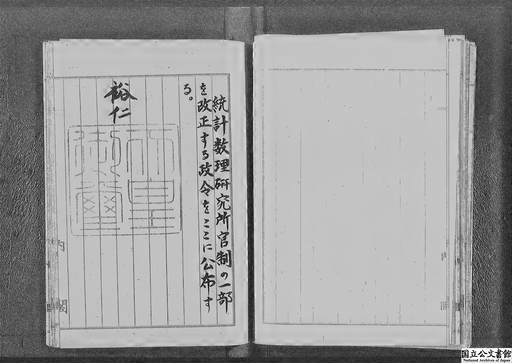 統計数理研究所官制の一部
を改正する政令をここに公布す
る。
裕仁
天皇
御璽
内閣
国立公文書館
National Archives of Japan